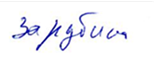 Зарубин